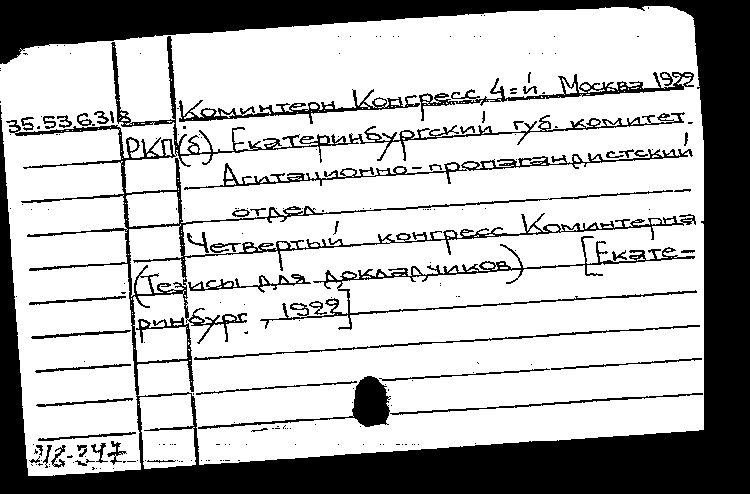 Коминтерн. Конгресс, 4=й. Москва 1922
35.53.6.318
РКП(б). Екатеринбургский губ. комитет.
Агитационно-пропагандистский
отдел.
Четвертый конгресс Коминтерна.
(Тезисы для докладчиков) [Екате=
ринбург., 1922]
218-347